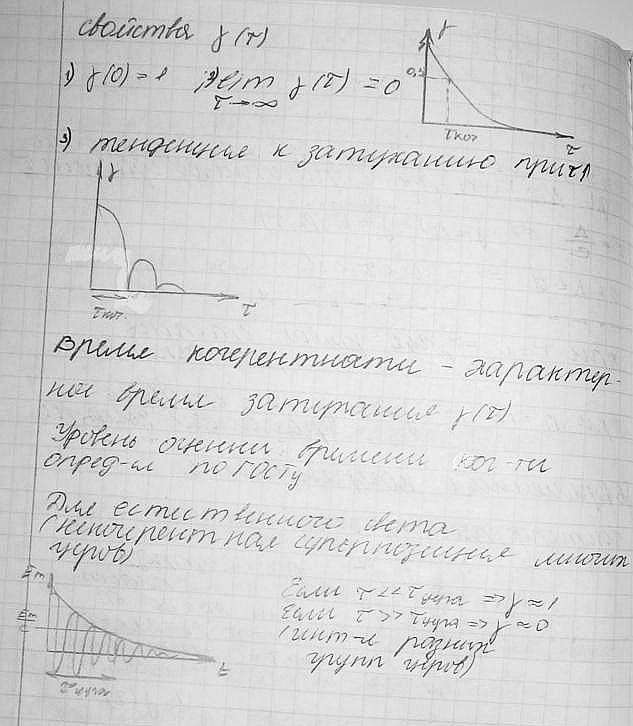 свойства γ(τ)
1) γ(0) = 1 2) lim γ(τ) = 0
τ→∞
γ
0,5
τког
τ
3) тенденция к затуханию при τ↑
γ
τког.
τ
Время когерентности – характер-
ное время затухания γ(τ)
Уровень оценки времени ког-ти
опред-м по ГОСТу
Для естественного света
(некогерентная суперпозиция многих
цугов)
Em
Em/e
τцуга
t
Если τ << τцуга => γ ≈ 1
Если τ >> τцуга => γ ≈ 0
(инт-я разных
групп цугов)